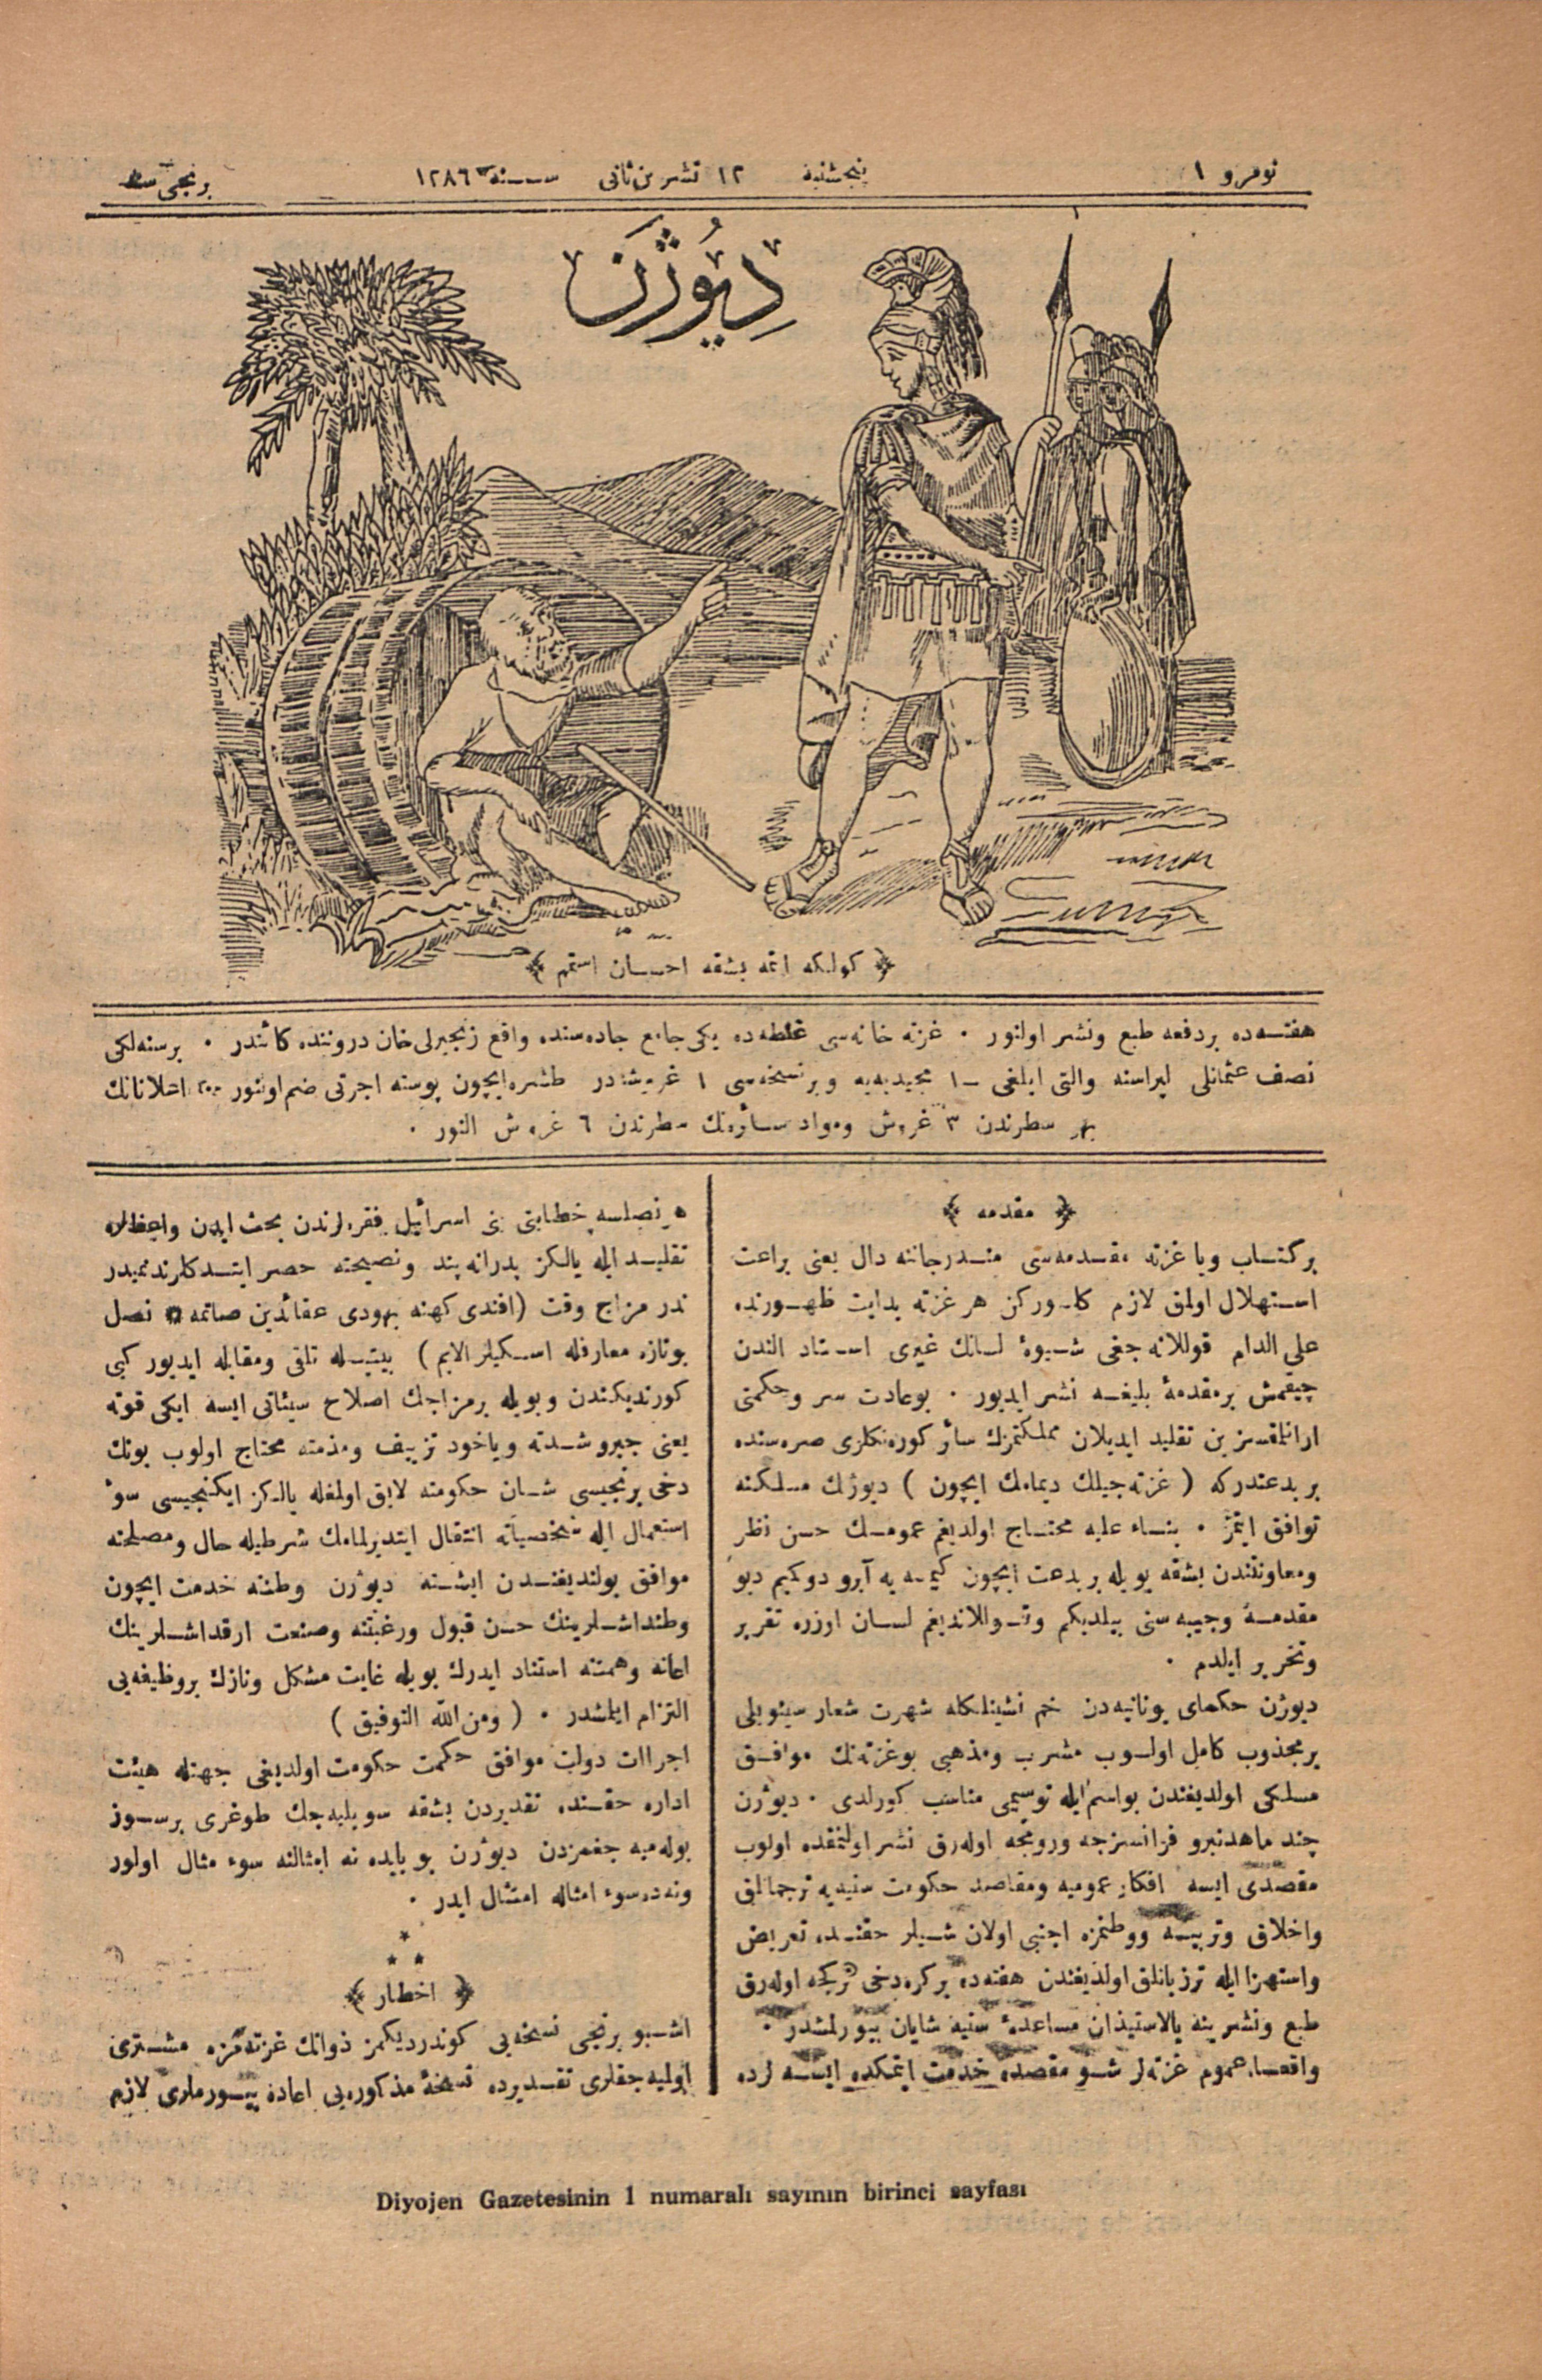 نومرو ١
پنجشنبه ١٢ تشرین ثانی سنه ١٢٨٦
برنجی سنه
دیوژن
﴿ كولكه ایتمه بشقه احسان استمم ﴾
هفته‌ده بردفعه طبع ونشر اولنور ٠ غزته خانه‌سی غلطه‌ده یكی جامع جاده‌سنده واقع زنجیرلی خان دروننده كائندر ٠ برسنه‌لكی
نصف عثمانلی لیراسنه والتی ایلغی ١ مجیدیه‌یه وبر نسخه‌سی ١ غروشه‌در طشره ایچون پوسته اجرتی ضم اولنور ٠٠٠ اعلاناتك
بهر سطرندن ٣ غروش ومواد سائره‌نك سطرندن ٦ غروش النور ٠
﴿ مقدمه ﴾
بر كتاب ویا غزته مقدمه‌سی مندرجاتنه دال یعنی براعت
استهلال اولمق لازم كلوركن هر غزته بدایت ظهورنده
علی الدوام قوللانه جغی شیوۀ لسانك غیری استاد الندن
چیقمش برمقدمۀ بلیغه نشر ایدیور ٠ بوعادت سر وحكمتی
ارانلمقسزین تقلید ایدیلان مملكتمزك سائر كوره‌نكلری صره‌سنده
بر بدعتدركه ( غزته‌جیلك دیمامك ایچون ) دیوژنك مسلكنه
توافق ایتمز ٠ بناء علیه محتاج اولدیغم عمومك حسن نظر
ومعاونتندن بشقه بویله بر بدعت ایچون كیمسه‌یه آبرو دوكمیم دیو
مقدمۀ وجیبه سنی بیلدیكم وقوللاندیغم لسان اوزره تقریر
وتحریر ایلدم ٠
دیوژن حكمای یونانیه‌دن خم نشینلكله شهرت شعار سینوپلی
برمجذوب كامل اولوب مشرب ومذهبی بوغزته‌نك موافق
مسلكی اولدیغندن بواسم ایله توسیمی مناسب كورلدی ٠ دیوژن
چند ماهدنبرو فرانسزجه ورومجه اوله‌رق نشر اولنمقده اولوب
مقصدی ایسه افكار عمومیه ومقاصد حكومت سنیه‌یه ترجمانلق
واخلاق وتربیه ووطنمزه اجنبی اولان شیلر حقنده تعریض
واستهزا ایله ترزبانلق اولدیغندن هفته‌ده بر كره‌دخی تركجه اوله‌رق
طبع ونشرینه بالاستیذان مساعدۀ سنیه شایان بیورلمشدر ٠
واقعا عموم غزته‌لر شو مقصده خدمت ایتمكده ایسه لرده
نصلسه خطابتی بنی اسرائیل فقره‌لرندن بحث ایدن واعظلره
تقلید ایله یالكز پدرانه پند ونصیحته حصر ایتدكلرندنمیدر
ندر مزاج وقت (افندی كهنه یهودی عقائدین صاتمه ٭ نصل
بوتازه معارفله اسكیلر الایم) بیتیله تلقی ومقابله ایدیور كبی
كورندیكندن وبویله برمزاجك اصلاح سیئاتی ایسه ایكی قوته
یعنی جبروشدته ویاخود تزییف ومذمته محتاج اولوب بونك
دخی برنجیسی شان حكومته لایق اولمغله یالكز ایكنجیسی سوء
استعمال ایله شخصیاته انتقال ایتدیرلمامك شرطیله حال ومصلحته
موافق بولندیغندن ایشته دیوژن وطننه خدمت ایچون
وطنداشلرینك حسن قبول ورغبتنه وصنعت ارقداشلرینك
اعانه وهمتنه استناد ایدرك بویله غایت مشكل ونازك بروظیفه‌یی
التزام ایلمشدر ٠ ( ومن الله التوفیق )
اجراات دولت موافق حكمت حكومت اولدیغی جهتله هیئت
اداره حقنده تقدیردن بشقه سویلیه‌جك طوغری برسوز
بوله‌میه جغمزدن دیوژن بوبابده نه امثالنه سوء مثال اولور
ونه‌ده سوء امثاله امتثال ایدر ٠
* * *
﴿ اخطار ﴾
اشبو برنجی نسخه‌یی كوندردیكمز ذواتك غزته‌مزه مشتری
اولمیه‌جقلری تقدیرده نسخۀ مذكوره‌یی اعاده بیورملری لازم
Diyojen Gazetesinin 1 numaralı sayının birinci sayfası